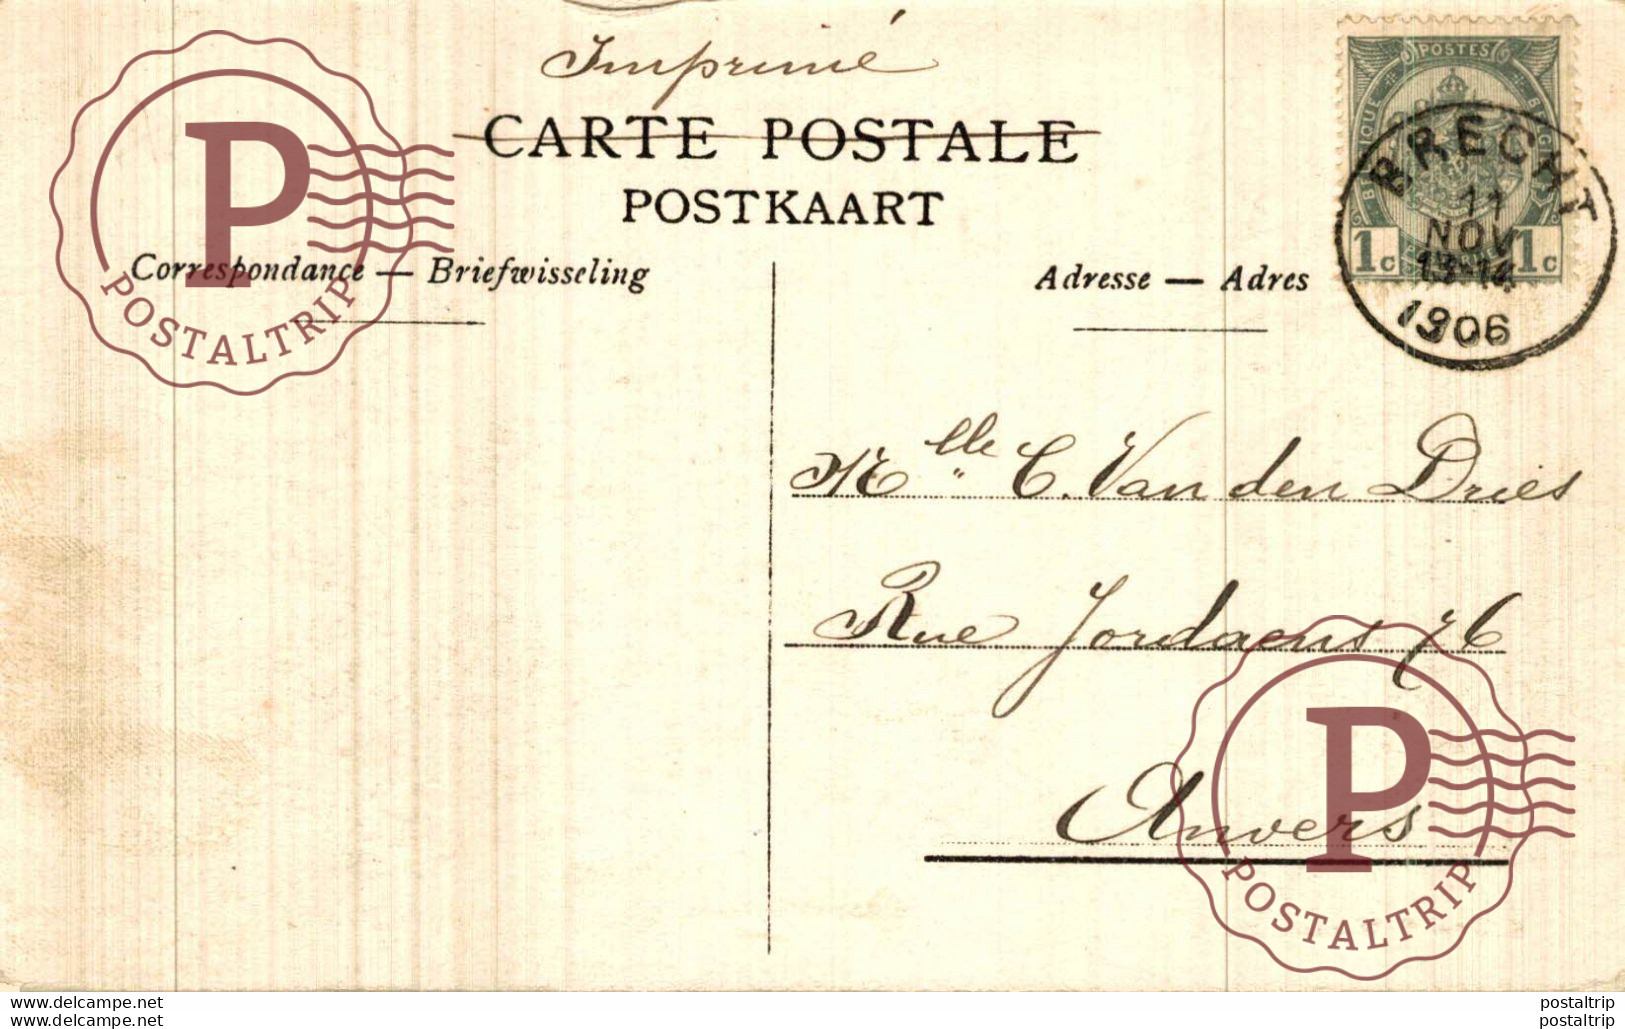 Imprimé
CARTE POSTALE
POSTKAART
Correspondance — Briefwisseling
Adresse — Adres
POSTES
BELGIQUE
BELGIË
1c 1c
BRECHT
11
NOV
13-14
1906
Mlle C. Van den Dries
Rue Jordaens 76
Anvers
P
POSTALTRIP
P
POSTALTRIP
www.delcampe.net
postaltrip
www.delcampe.net
postaltrip